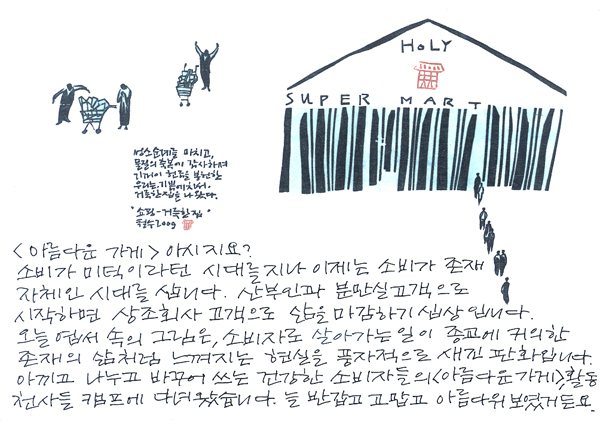 HOLY
SUPER MART
성소순례를 마치고,
물질의 축복에 감사하며
기꺼이 헌금을 봉헌한
우리는, 기쁨에 차서
거룩한 집을 나왔다.
"쇼핑-거룩한 집"
철수 2009
<아름다운 가게> 아시지요?
소비가 미덕이라던 시대를 지나 이제는 소비가 존재
자체인 시대를 삽니다. 산부인과 분만실 고객으로
시작하면 상조회사 고객으로 삶을 마감하기 십상입니다.
오늘 엽서 속의 그림은, 소비자로 살아가는 일이 종교에 귀의한
존재의 삶처럼 느껴지는 현실을 풍자적으로 새긴 판화입니다.
아끼고 나누고 바꾸어 쓰는 건강한 소비자들의 <아름다운가게>, 활동
천사들 캠프에 다녀왔습니다. 늘 반갑고 고맙고 아름다워 보였거든요.